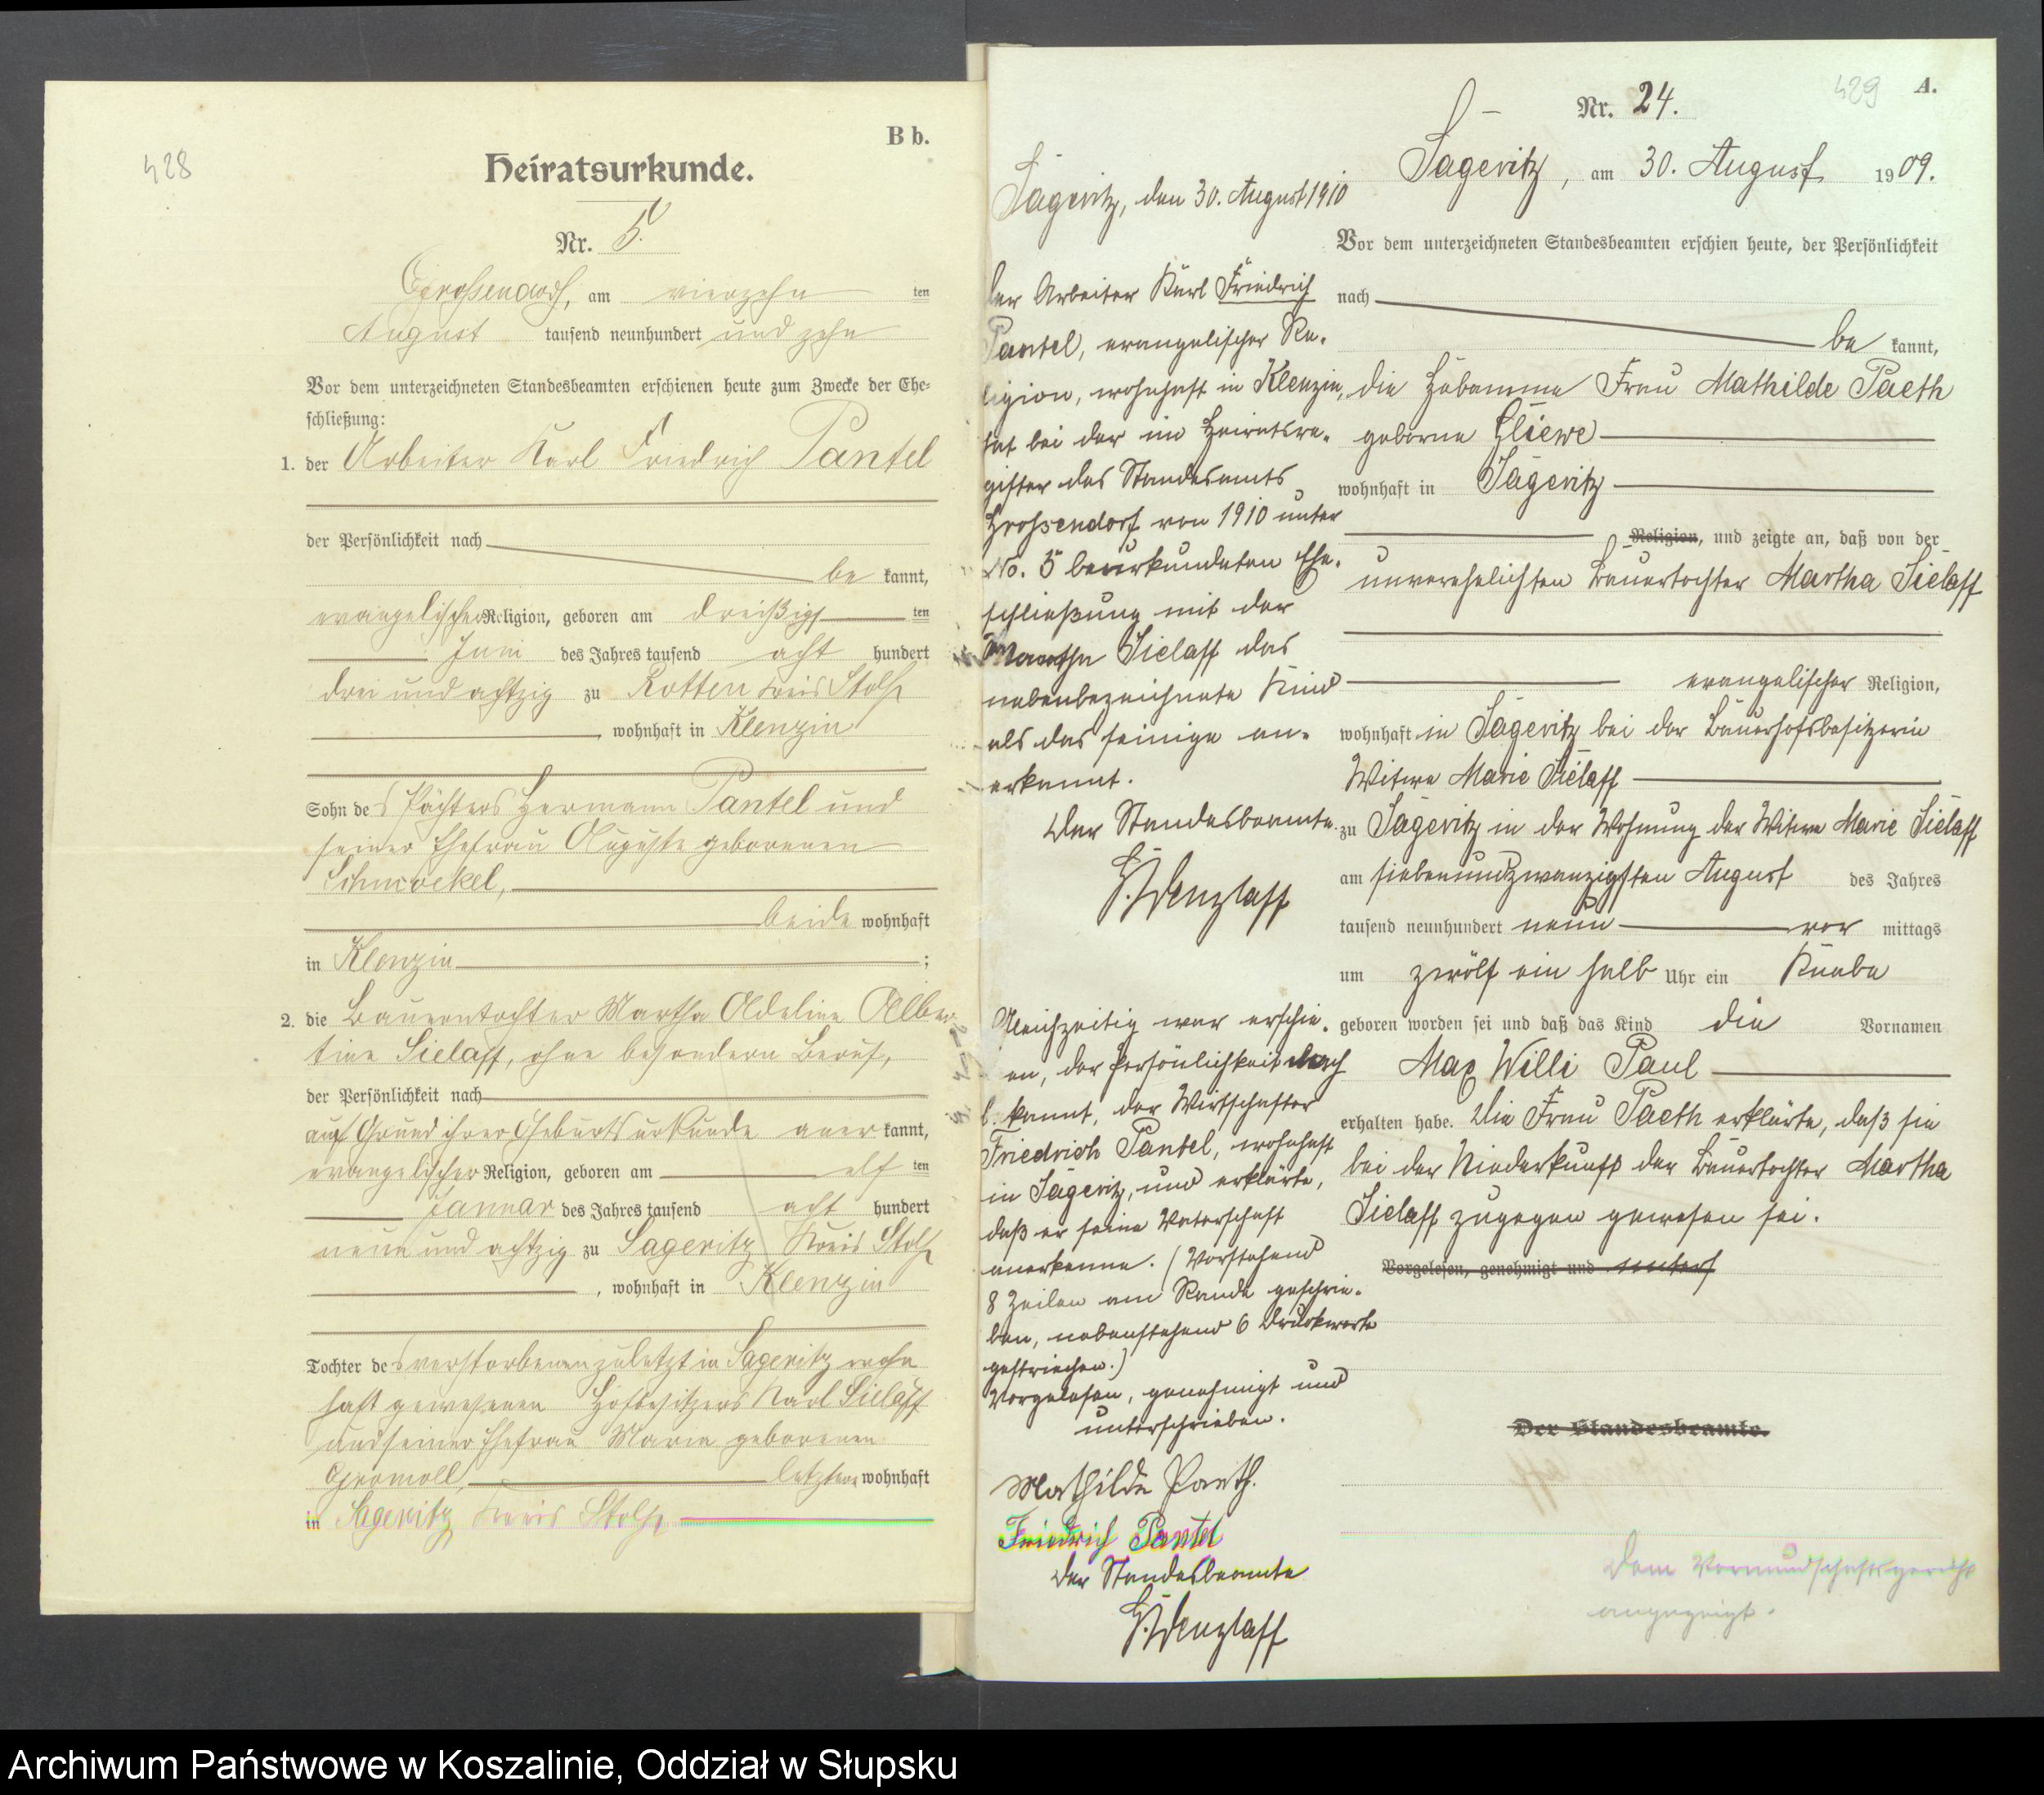 428
B b.
Heiratsurkunde.
Nr. 5.
Grossendorf, am vierzehn ten
August tausend neunhundert und zehn
Vor dem unterzeichneten Standesbeamten erschienen heute zum Zwecke der Ehe-
schließung:
1. der Arbeiter Karl Friedrich Pantel
der Persönlichkeit nach
be kannt,
evangelischer Religion, geboren am dreißigs ten
Juni des Jahres tausend acht hundert
drei und achtzig zu Rotten Kreis Stolp
, wohnhaft in Klenzin
Sohn des Pächters Hermann Pantel und
seiner Ehefrau Auguste geborenen
Schmoekel,
beide wohnhaft
in Klenzin ;
2. die Bauerntochter Martha Adeline Alber
tine Sielaff, ohne besondern Beruf,
der Persönlichkeit nach
auf Grund ihrer Geburtsurkunde aner kannt,
evangelischer Religion, geboren am elf ten
Januar des Jahres tausend acht hundert
neun und achtzig zu Sageritz Kreis Stolp
, wohnhaft in Klenzin
Tochter des verstorbenen zuletzt in Sageritz wohn
haft gewesenen Hofbesitzers Karl Sielaff
und seiner Ehefrau Marie geborenen
Gromoll, letztere wohnhaft
in Sageritz Kreis Stolp
429
A.
Nr. 24.
Sageritz, am 30. August 1909.
Vor dem unterzeichneten Standesbeamten erschien heute, der Persönlichkeit
nach
be kannt,
die Hebamme Frau Mathilde Paeth
geborne Gliewe
wohnhaft in Sageritz
Religion, und zeigte an, daß von der
unverehelichten Bauertochter Martha Sielaff
evangelischer Religion,
wohnhaft in Sageritz bei der Bauerhofsbesitzerin
Witwe Marie Sielaff
zu Sageritz in der Wohnung der Witwe Marie Sielaff
am siebenundzwanzigsten August des Jahres
tausend neunhundert neun vor mittags
um zwölf ein halb Uhr ein Knabe
geboren worden sei und daß das Kind die Vornamen
Max Willi Paul
erhalten habe. Die Frau Paeth erklärte, daß sie
bei der Niederkunft der Bauertochter Martha
Sielaff zugegen gewesen sei.
Vorgelesen, genehmigt und unters
Der Standesbeamte.
Dem Vormundschaftsgericht
angezeigt.
Sageritz, den 30. August 1910
Der Arbeiter Karl Friedrich
Pantel, evangelischer Re-
ligion, wohnhaft in Klenzin,
hat bei der im Heiratsre-
gister des Standesamts
Grossendorf von 1910 unter
No. 5 beurkundeten Ehe-
schließung mit der
Martha Sielaff das
nebenbezeichnete Kind
als das seinige an-
erkannt.
Der Standesbeamte
G. Wenzlaff
Gleichzeitig war erschie-
en, der Persönlichkeit nach
b. kannt, der Wirtschafter
Friedrich Pantel, wohnhaft
in Sageritz, und erklärte,
daß er seine Vaterschaft
anerkenne. (Vorstehend
8 Zeilen am Rande geschrie-
ben, nebenstehend 6 Druckworte
gestrichen.)
Vorgelesen, genehmigt und
unterschrieben.
Mathilde Paeth.
Friedrich Pantel
Der Standesbeamte
G. Wenzlaff
Archiwum Państwowe w Koszalinie, Oddział w Słupsku